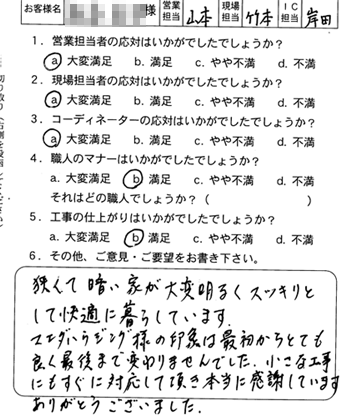 お客様名 様 営業担当 山本 現場担当 竹本 IC担当 岸田
1．営業担当者の応対はいかがでしたでしょうか？
a. 大変満足 b. 満足 c. やや不満 d. 不満
2．現場担当者の応対はいかがでしたでしょうか？
a. 大変満足 b. 満足 c. やや不満 d. 不満
3．コーディネーターの応対はいかがでしたでしょうか？
a. 大変満足 b. 満足 c. やや不満 d. 不満
4．職人のマナーはいかがでしたでしょうか？
a. 大変満足 b. 満足 c. やや不満 d. 不満
それはどの職人でしょうか？（ ）
5．工事の仕上がりはいかがでしたでしょうか？
a. 大変満足 b. 満足 c. やや不満 d. 不満
6．その他、ご意見・ご要望をお書き下さい。
狭くて暗い家が大変明るくスッキリと
して快適に暮らしています。
様の印象は最初からとても
良く最後まで変わりませんでした。小さな工事
にもすぐに対応して頂き本当に感謝しています
ありがとうございました。